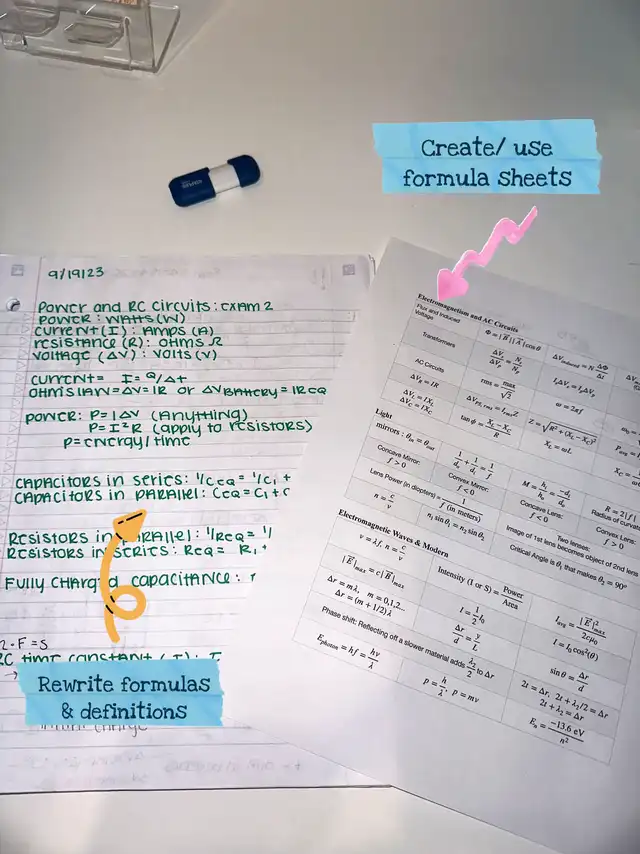 Create/ use
formula sheets
9/19/23
Power and RC Circuits: Exam 2
Power: Watts (W)
Current (I): Amps (A)
resistance (R): Ohms Ω
Voltage (ΔV): Volts (V)
Current= I= Q/Δt
Ohms law=ΔV=IR or ΔVBattery=IReq
Power: P=IΔV (Anything)
P=I²R (apply to resistors)
P=energy/time
Capacitors in series: 1/Ceq = 1/C1 +
Capacitors in Parallel: Ceq = C1 + C
Resistors in Parallel: 1/Req = 1/
Resistors in series: Req = R1 +
Fully charged capacitance:
Ω·F=s
RC time constant
Rewrite formulas
& definitions
Electromagnetism and AC Circuits
Flux and Induced
Voltage
Φ = |B||A|cosθ
ΔVinduced = N ΔΦ/Δt
Transformers
ΔVs/ΔVp = Ns/Np
IsΔVs = IpΔVp
AC Circuits
ΔVR = IR
rms = max/√2
ω = 2πf
ΔVL = IXL
ΔVC = IXC
tan ϕ = (XL − XC)/R
ΔVPS, rms = IrmsZ
Z = √R² + (XL − XC)²
XL = ωL
Light
mirrors: θin = θout
1/do + 1/di = 1/f
M = hi/ho = −di/do
R = 2|f|
Radius of curva
Concave Mirror:
f > 0
Convex Mirror:
f < 0
Concave Lens:
f < 0
Convex Lens:
f > 0
Lens Power (in diopters) = 1/f (in meters)
Two lenses:
Image of 1st lens becomes object of 2nd lens
n = c/v
n1 sin θ1 = n2 sin θ2
Critical Angle is θ1 that makes θ2 = 90°
Electromagnetic Waves & Modern
v = λf, n = c/v
Intensity (I or S) = Power/Area
|E|max = c|B|max
I = 1/2 I0
Iavg = |E|²max/2cμ0
I = I0 cos²(θ)
Δr = mλ, m = 0,1,2...
Δr = (m + 1/2)λ
Δr/d = y/L
sin θ = Δr/d
Phase shift: Reflecting off a slower material adds λ2/2 to Δr
2t = Δr, 2t + λ2/2 = Δr
2t + λ2 = Δr
Ephoton = hf = hv/λ
p = h/λ, p = mv
En = −13.6 eV/n²